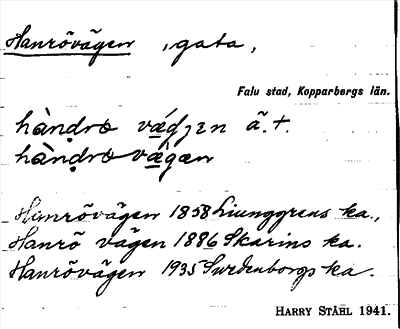 Hanrövägen, gata,
Falu stad, Kopparbergs län.
hànḍrø vǽdȷɛn ã.t.
hànḍrøvǽgæn
Hanrövägen 1858 Liunggrens ka.,
Hanrö vägen 1886 Skarins ka.
Hanrövägen 1935 Swedenborgs ka.
HARRY STÅHL 1941.